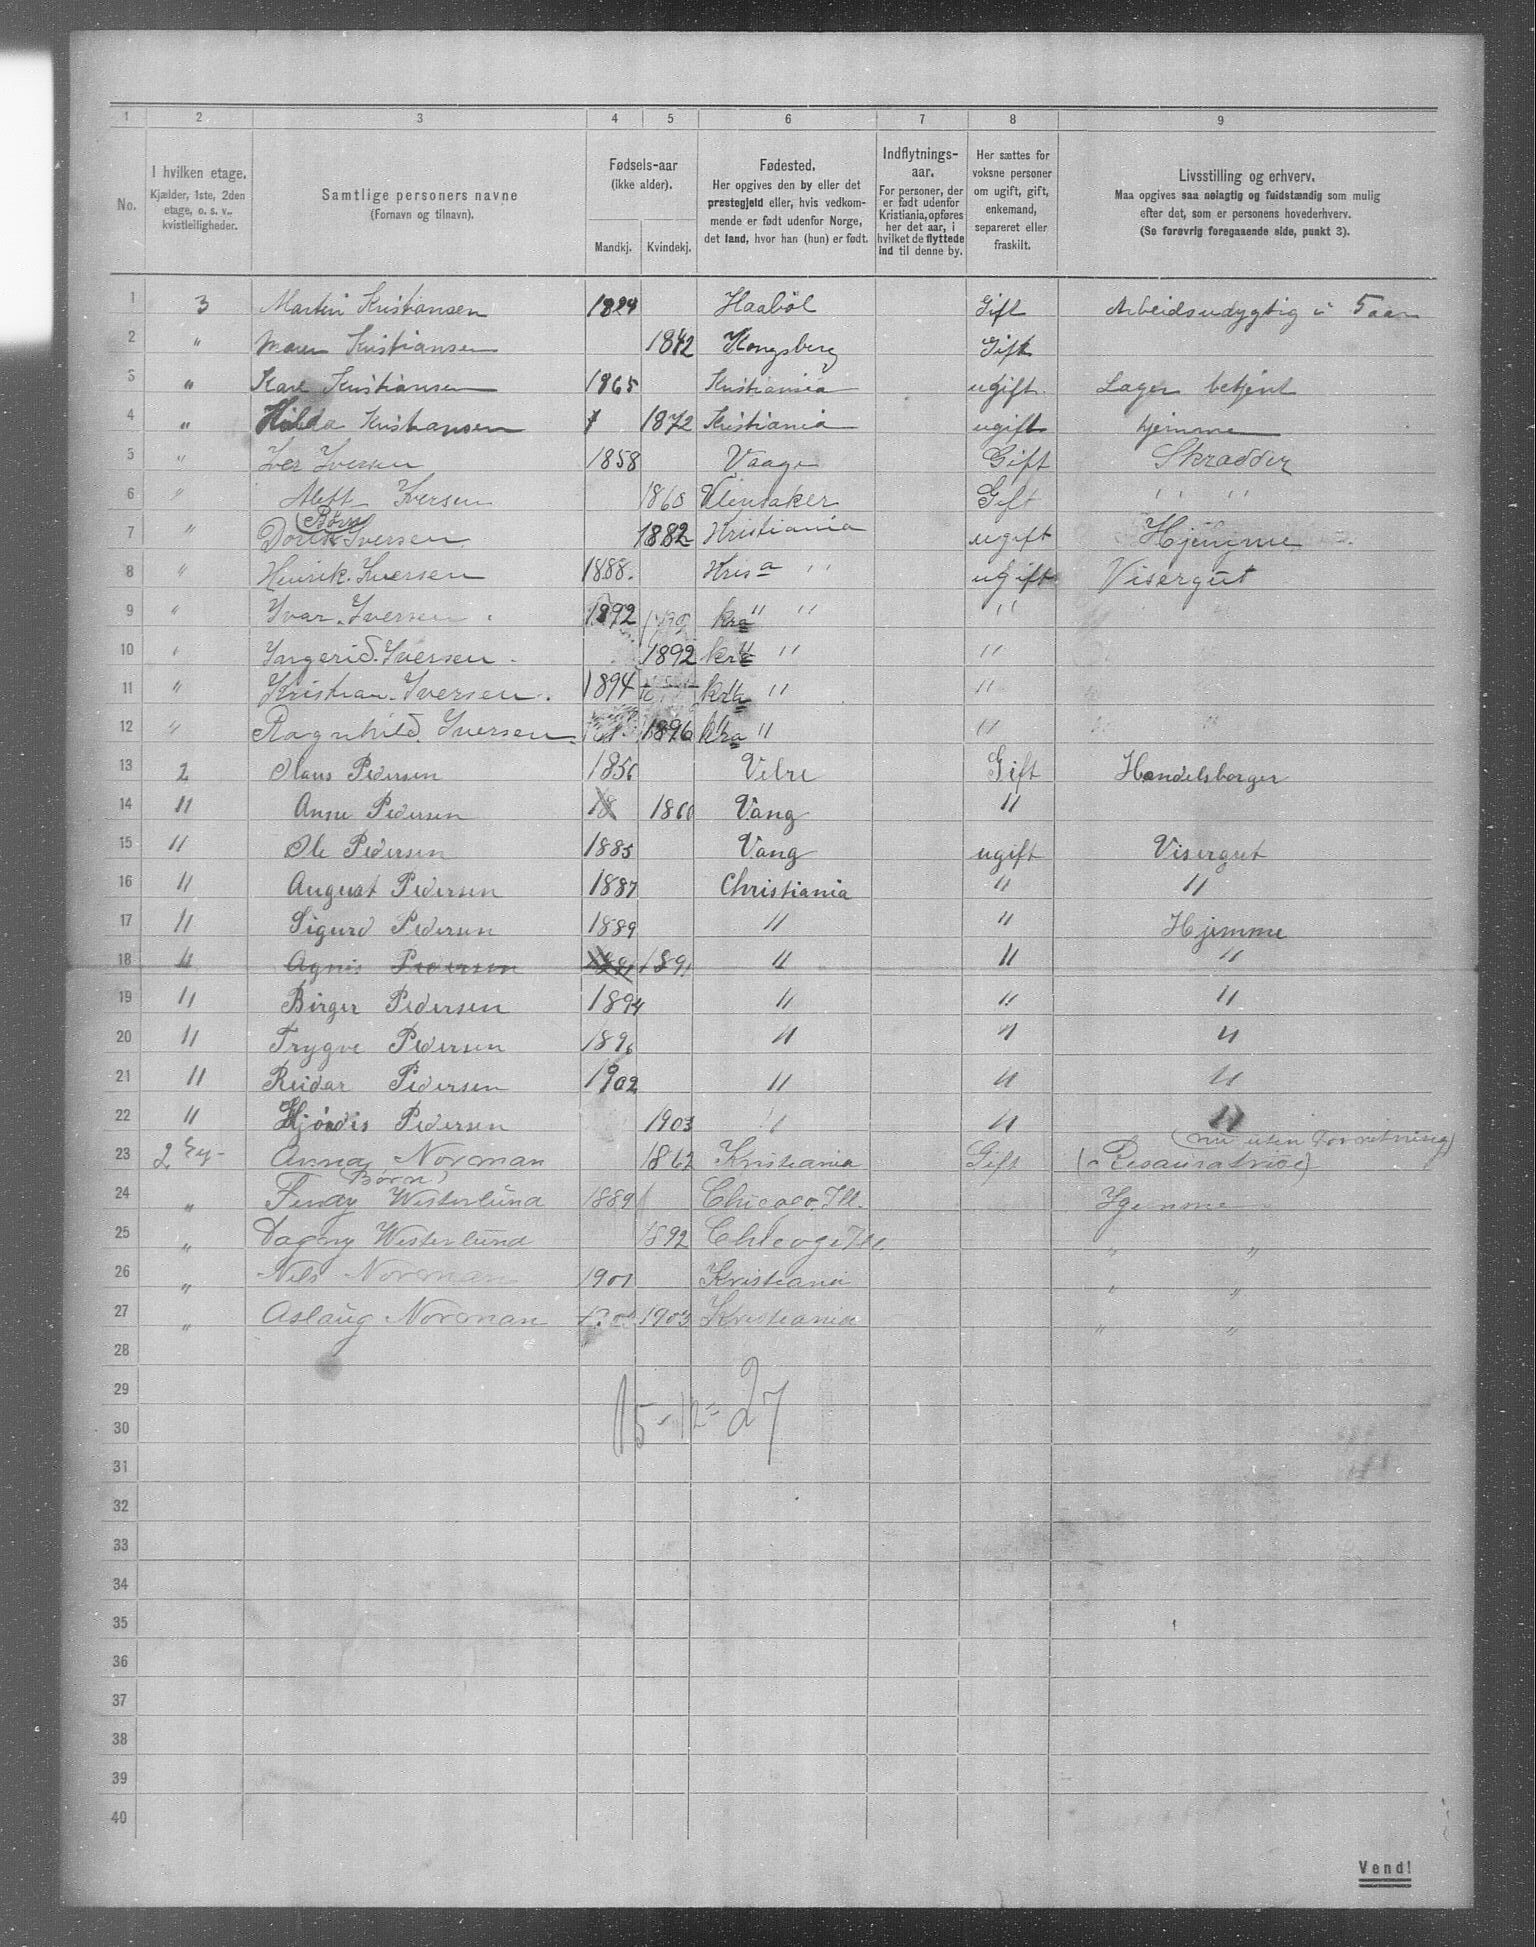 1 2 3 4 5 6 7 8 9
No.
I hvilken etage.
Kjælder, 1ste, 2den
etage, o. s. v.,
kvistleiligheder.
Samtlige personers navne
(Fornavn og tilnavn).
Fødsels-aar
(ikke alder).
Mandkj. Kvindekj.
Fødested.
Her opgives den by eller det
prestegjeld eller, hvis vedkom-
mende er født udenfor Norge,
det land, hvor han (hun) er født.
Indflytnings-
aar.
For personer, der
er født udenfor
Kristiania, opføres
her det aar, i
hvilket de flyttede
ind til denne by.
Her sættes for
voksne personer
om ugift, gift,
enkemand,
separeret eller
fraskilt.
Livsstilling og erhverv.
Maa opgives saa nøiagtig og fuldstændig som mulig
efter det, som er personens hovederhverv.
(Se forøvrig foregaaende side, punkt 3).
1 3 Martin Kristiansen 1824 Haabøl Gift Arbeidsudygtig i 5 aar
2 " Maren Kristiansen 1842 Kongsberg Gift
3 " Karl Kristiansen 1865 Kristiania ugift. Lager betjent
4 " Hilda Kristiansen 1872 Kristiania ugift hjemme
5 " Iver Iversen 1858 Vaage Gift Skrædder
6 " Alett Iversen 1860 Gift " "
(Børn)
7 " Iversen 1882 Kristiania ugift Hjemme
8 " Henrik. Iversen 1888. Kria " ugift Visergut
9 " Ivar. Iversen 1892 kra " " "
10 " Ingerid. Iversen 1892 kra " " "
11 " Kristian. Iversen. 1894 kra " "
12 " Ragnhild. Iversen 1896 kra " "
13 2 Olaus Pedersen 1856 Gift Handelsborger
14 " Anne Pedersen 18 1860 Vang "
15 " Ole Pedersen 1885 Vang ugift Visergut
16 " August Pedersen 1887 Christiania " "
17 " Sigurd Pedersen 1889 " " Hjemme
18 " Agnis Pedersen 1891 " " "
19 " Birger Pedersen 1894 " " "
20 " Trygve Pedersen 1896 " " "
21 " Reidar Pedersen 1902 " " "
22 " Hjørdis Pedersen 1903 " " "
(nu uten Forretning)
23 2 Anna Norman 1862 Kristiania Gift
(Børn)
24 " Westerlund 1889 Chicago. Ill. Hjemme
25 " Dagny Westerlund 1892 Chicago Ill. " "
26 " Nils Norman 1901 Kristiania " "
27 " Aslaug Norman 1903 Kristiania " "
28
29
15-12-27
30
31
32
33
34
35
36
37
38
39
40
Vend!